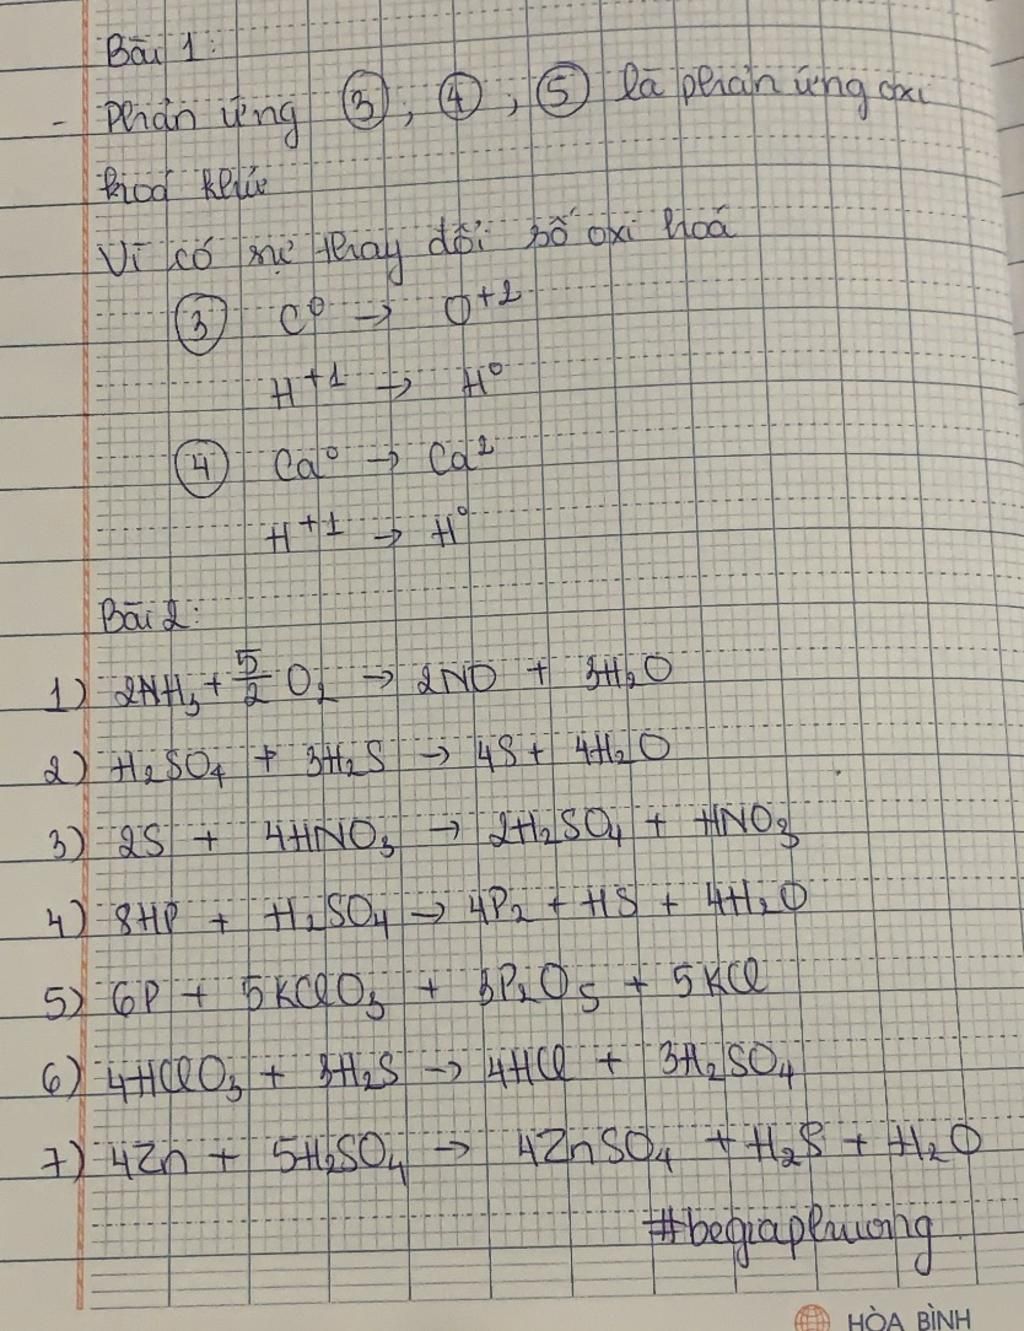 Bài 1:
- Phản ứng ③, ④, ⑤ là phản ứng oxi
hoá khử
Vì có sự thay đổi số oxi hoá
③ C⁰ → O⁺²
H⁺¹ → H⁰
④ Ca⁰ → Ca²
H⁺¹ → H⁰
Bài 2:
1) 2NH₃ + 5/2 O₂ → 2NO + 3H₂O
2) H₂SO₄ + 3H₂S → 4S + 4H₂O
3) 2S + 4HNO₃ → 2H₂SO₄ + HNO₃
4) 8HP + H₂SO₄ → 4P₂ + HS + 4H₂O
5) 6P + 5KClO₃ + 3P₂O₅ + 5KCl
6) 4HClO₃ + 3H₂S → 4HCl + 3H₂SO₄
7) 4Zn + 5H₂SO₄ → 4ZnSO₄ + H₂S + H₂O
#begiaphuong
HÒA BÌNH